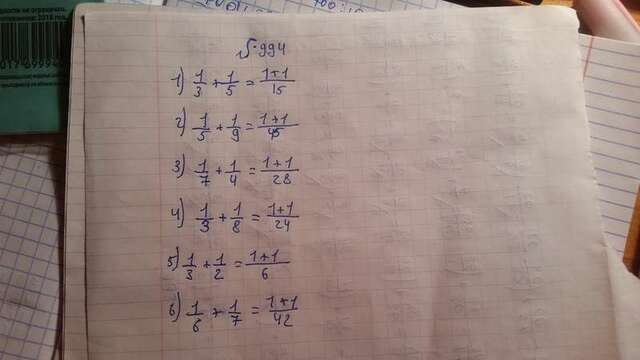 №994
1) 1/3 + 1/5 = 1+1/15
2) 1/5 + 1/9 = 1+1/45
3) 1/7 + 1/4 = 1+1/28
4) 1/3 + 1/8 = 1+1/24
5) 1/3 + 1/2 = 1+1/6
6) 1/6 + 1/7 = 1+1/42